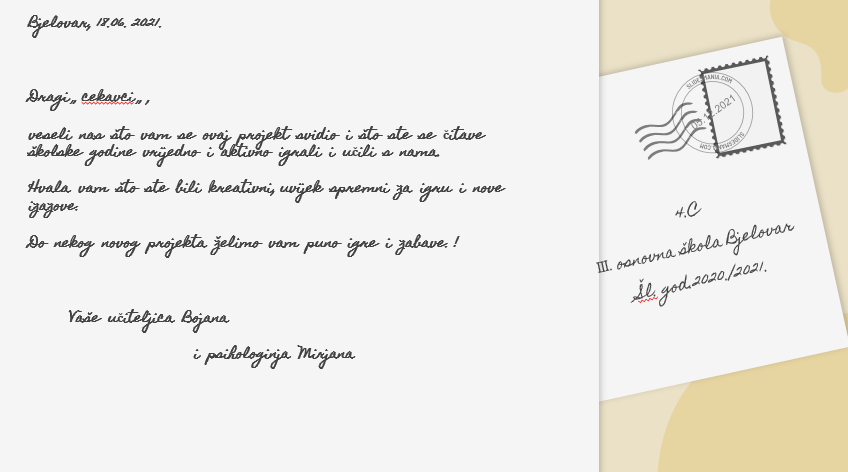 Bjelovar, 18.06. 2021.
Dragi,, cekavci,, ,
veseli nas što vam se ovaj projekt svidio i što ste se čitave
školske godine vrijedno i aktivno igrali i učili s nama.
Hvala vam što ste bili kreativni, uvijek spremni za igru i nove
izazove.
Do nekog novog projekta želimo vam puno igre i zabave. !
Vaše učiteljica Bojana
i psihologinja Mirjana
SLIDESMANIA.COM
SLIDESMANIA.COM
4.C
III. osnovna škola Bjelovar
Šl. god.2020./2021.